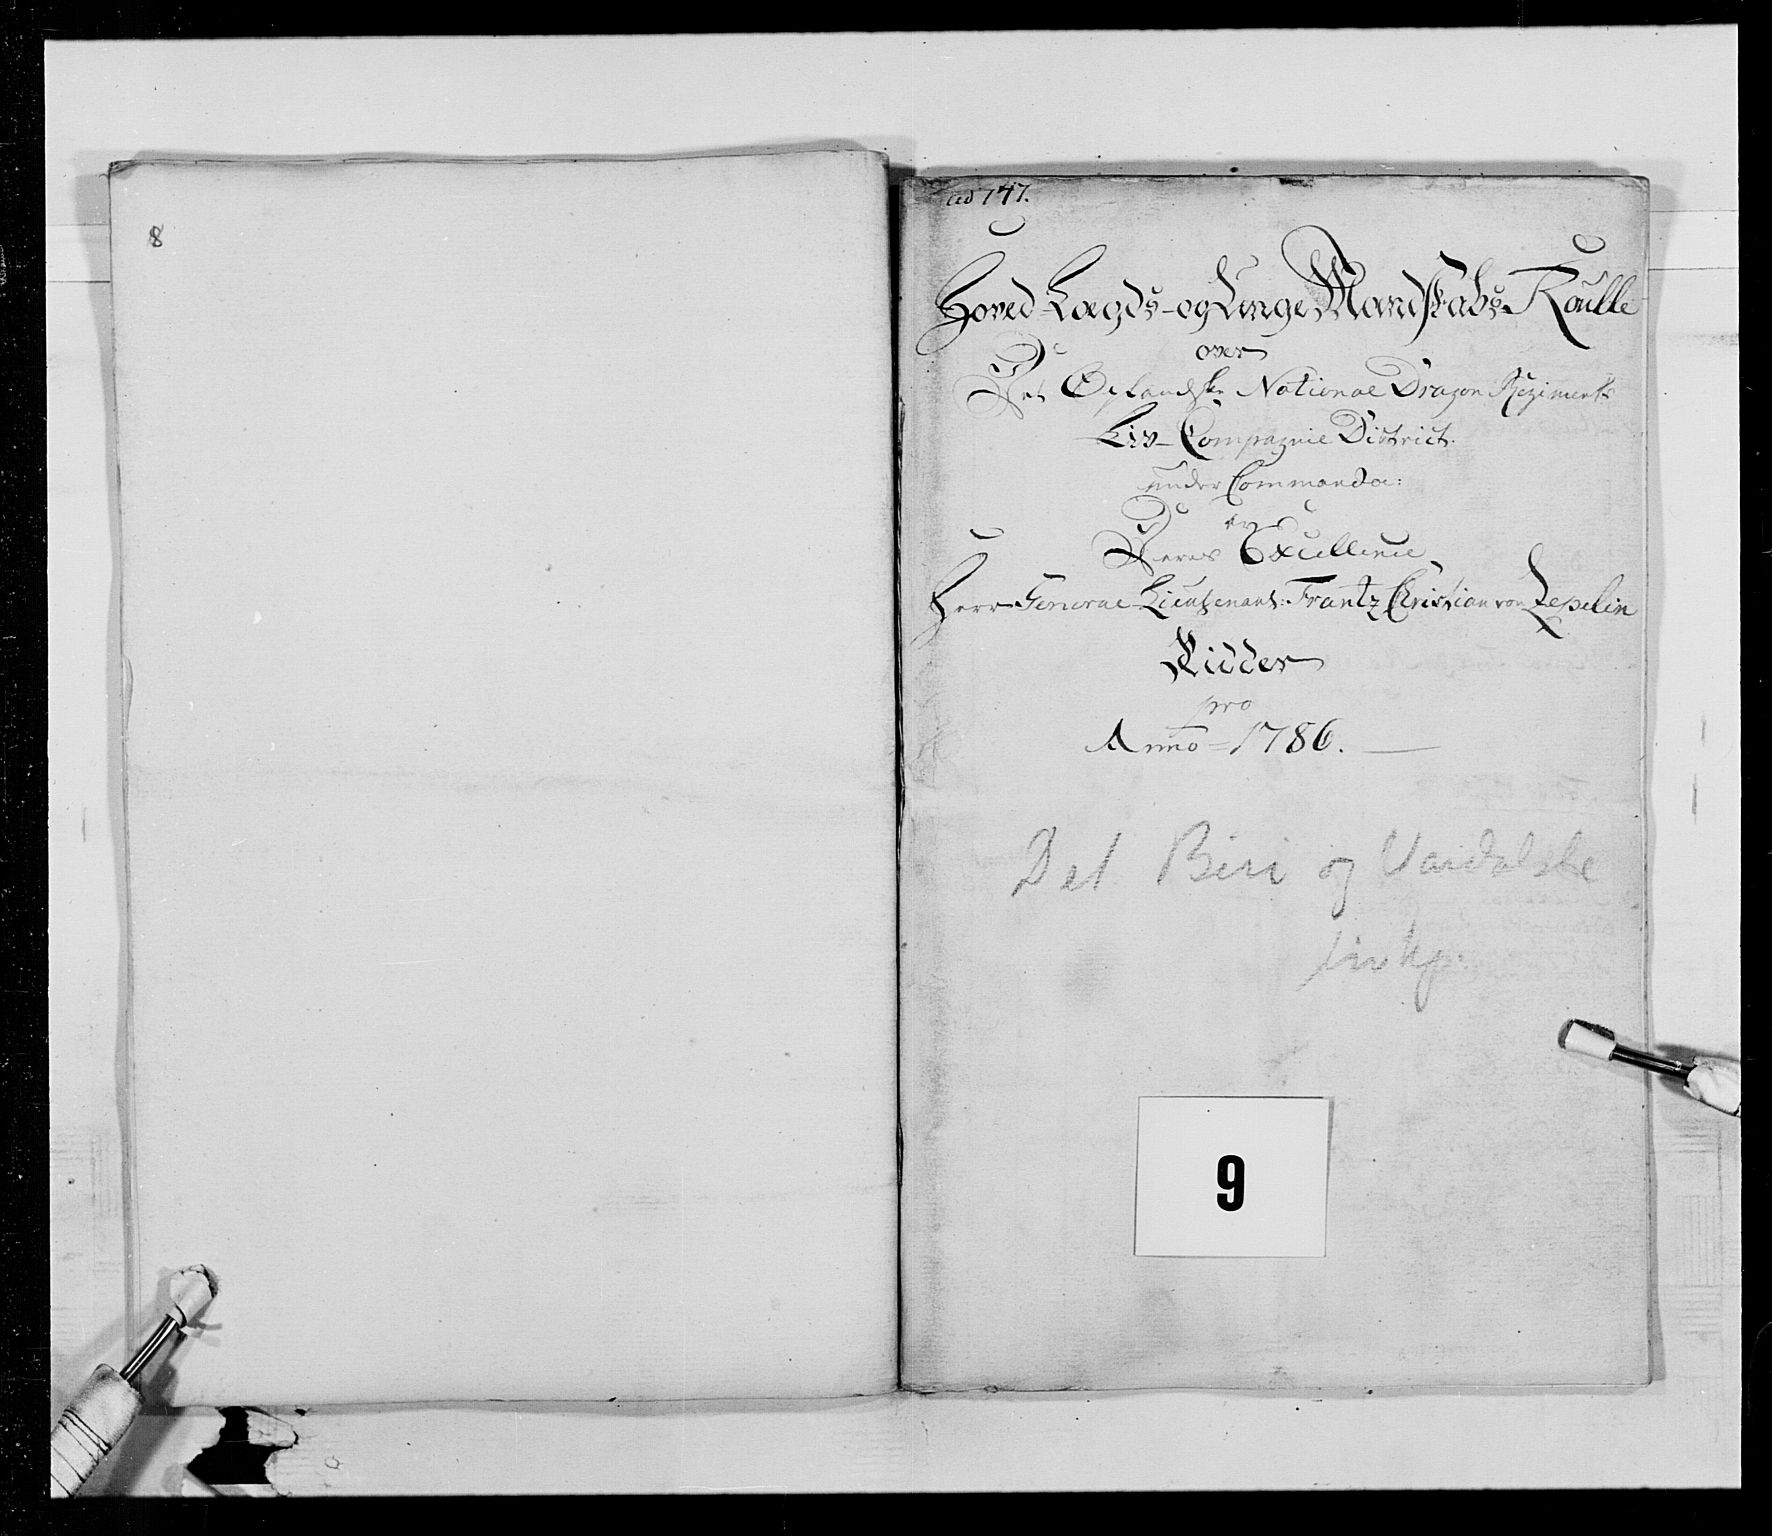 8
ad 747.
Hoved-Lægds-og Unge Mandskabs-Roulle
over
Det Oplandske National Dragon Regiments
Liv-Compagnie District.
under Commando:
av
Deres Excellence
Herr General-Lieutenant: Frantz Christian von Zepelin
Ridder
pro
Anno = 1786.
Det Biri og Vardalske
livkp.
9